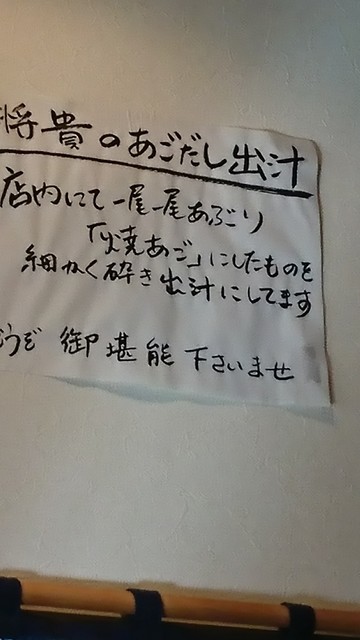 将貴のあごだし出汁
店内にて一尾一尾あぶり
「焼あご」にしたものを
細かく砕き出汁にしてます
どうぞ 御堪能下さいませ